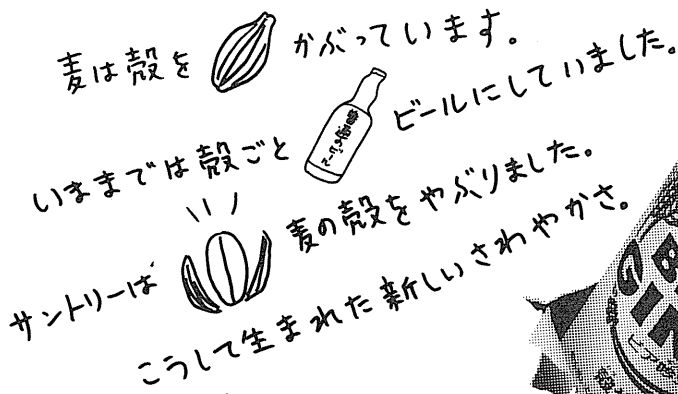 麦は殻をかぶっています。
いままでは殻ごとビールにしていました。
普通のびん
サントリーは麦の殻をやぶりました。
こうして生まれた新しいさわやかさ。
ビア吟